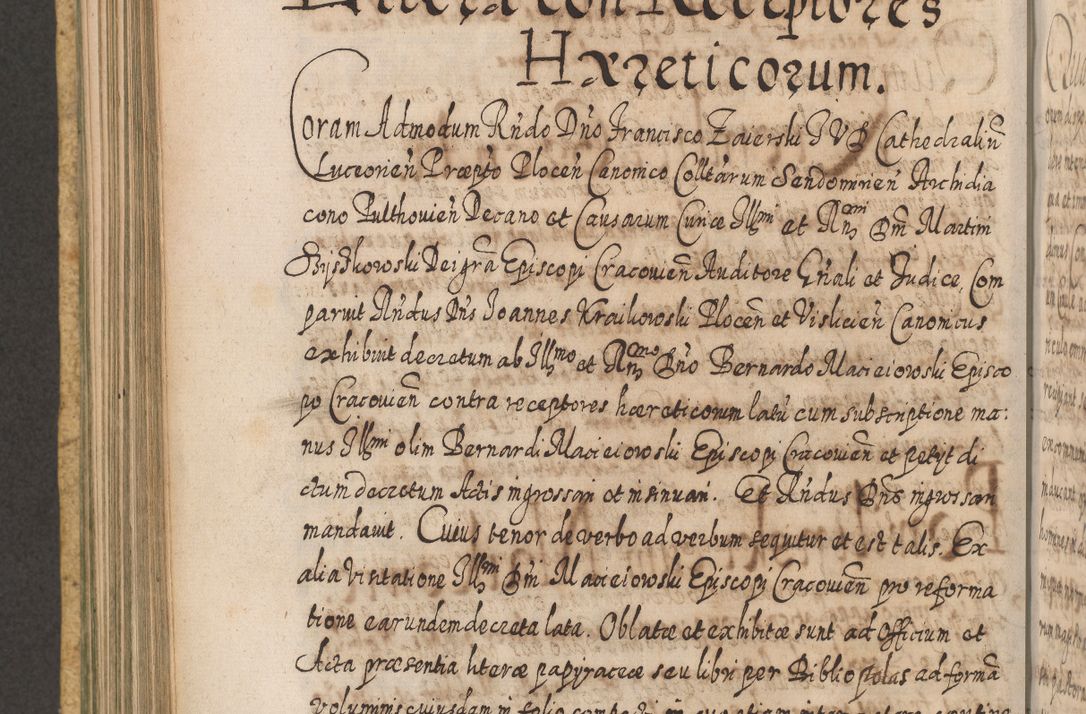 con Receptores
Hæreticorum.
Coram Admodum Rñdo Dño Francisco Zaierski I V D Cathedraliũ
Luceorieñ Præpto Ploceñ Canonico Colltarum Sendomirieñ Archidia
cono Pulthovieñ Decano et Causarum Curiæ Illmi et Rñ Dñi Martini
Szyszkowski Dei grã Episcopi Cracovieñ Auditore Gñali et Judice, Com
paruit Rñdus Dñs Joannes Kraikowski Ploceñ et Vislicieñ Canonicus
exhibuit decretum ab Illmo et Rño Dño Bernardo Macieiowski Episco
po Cracovieñ contra receptores hæreticorum latũ cum subscriptione ma:
nus Illmi olim Bernardi Macieiowski Episcopi Cracovieñ et petyt di
ctum decretum Actis ingrossari et insinuari. Et Rñdus Dñs ingrossari
mandavit. Cuius tenor de verbo ad verbum sequitur et est talis. Ex
alia visitatione Illmi Dñi Macieiowski Episcopi Cracovieñ pro reforma
tione earundem decreta lata. Oblatæ et exhibitæ sunt ad Officium et
Acta præsentia literæ papyraceæ seu libri per Bibliopolas ad formã
voluminis cuiusdam in folio